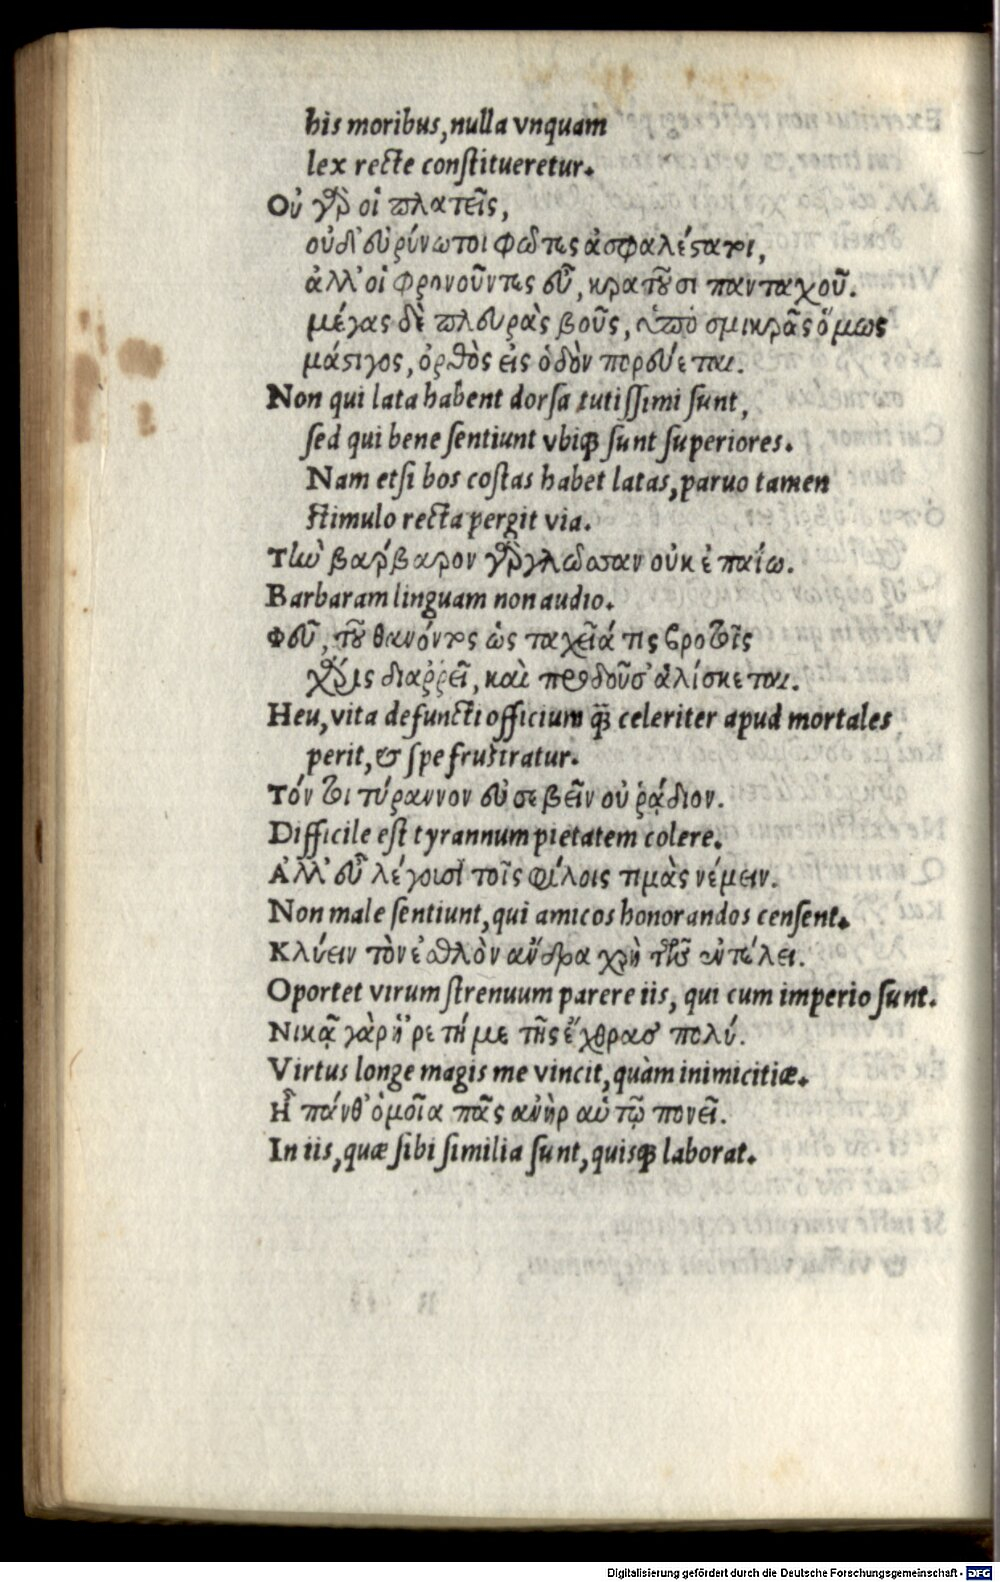 his moribus, nulla vnquam
lex recte constitueretur.
Οὐ γὰρ οἱ πλατεῖς,
οὐδ' εὐρύνωτοι φῶτες ἀσφαλέστατοι,
ἀλλ' οἱ φρονοῦντες εὖ, κρατοῦσι πανταχοῦ.
μέγας δὲ πλευρὰς βοῦς, ὑπὸ σμικρᾶς ὅμως
μάστιγος, ὀρθὸς εἰς ὁδὸν πορεύεται.
Non qui lata habent dorsa tutissimi sunt,
sed qui bene sentiunt vbiq; sunt superiores.
Nam etsi bos costas habet latas, paruo tamen
stimulo recta pergit via.
Τὴν βαρβαρον γὰρ γλῶσσαν οὐκ ἐπαΐω.
Barbaram linguam non audio.
Φεῦ, τοῦ θανόντος ὡς ταχεῖά τις βροτοῖς
χάρις διαῤῥεῖ, καὶ προδοῦσ' ἁλίσκεται.
Heu, vita defuncti officium q̈; celeriter apud mortales
perit, & spe frustratur.
Τόν τοι τύραννον εὐσεβεῖν οὐ ῥᾴδιον.
Difficile est tyrannum pietatem colere.
Ἀλλ' εὖ λέγουσι τοῖς φίλοις τιμὰς νέμειν.
Non male sentiunt, qui amicos honorandos censent.
Κλύειν τὸν ἐσθλὸν ἄνδρα χρὴ τῶν ἐν τέλει.
Oportet virum strenuum parere iis, qui cum imperio sunt.
Νικᾷ γὰρ ἡ 'ρετή με τῆς ἔχθρας πολύ.
Virtus longe magis me vincit, quàm inimicitiæ.
Ἦ πάνθ' ὁμοῖα πᾶς ἀνὴρ αὑτῷ πονεῖ.
In iis, quæ sibi similia sunt, quisq; laborat.
Digitalisierung gefördert durch die Deutsche Forschungsgemeinschaft - DFG